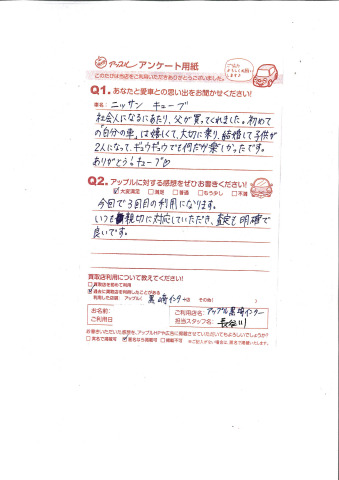 アップル アンケート用紙
このたびは当店をご利用いただきありがとうございました。
Q1. あなたと愛車との思い出をお聞かせください!
車名: ニッサン キューブ
社会人になるにあたり、父が買ってくれました。初めて
の「自分の車」は嬉しくて、大切に乗り、結婚して子供が
2人になって、ギュウギュウでも何だか楽しかったです。
ありがとう!キューブ♡
Q2. アップルに対する感想をぜひお書きください!
☑大変満足 □満足 □普通 □もう少し □不満
今回で3回目の利用になります。
いつも親切に対応していただき、査定も明確で
良いです。
買取店利用について教えてください!
□買取店を初めて利用
☑過去に買取店を利用したことがある
利用した店舗 アップル( 黒崎インター 店 その他( )
お名前:
ご利用日
ご利用店名: アップル黒崎インター
担当スタッフ名: 長谷川
お書きいただいた感想を、アップルHPや広告に掲載させていただいてもよろしいでしょうか?
□実名で掲載可 ☑匿名なら掲載可 □掲載不可 ※ご記入がない場合は、匿名で掲載いたします。